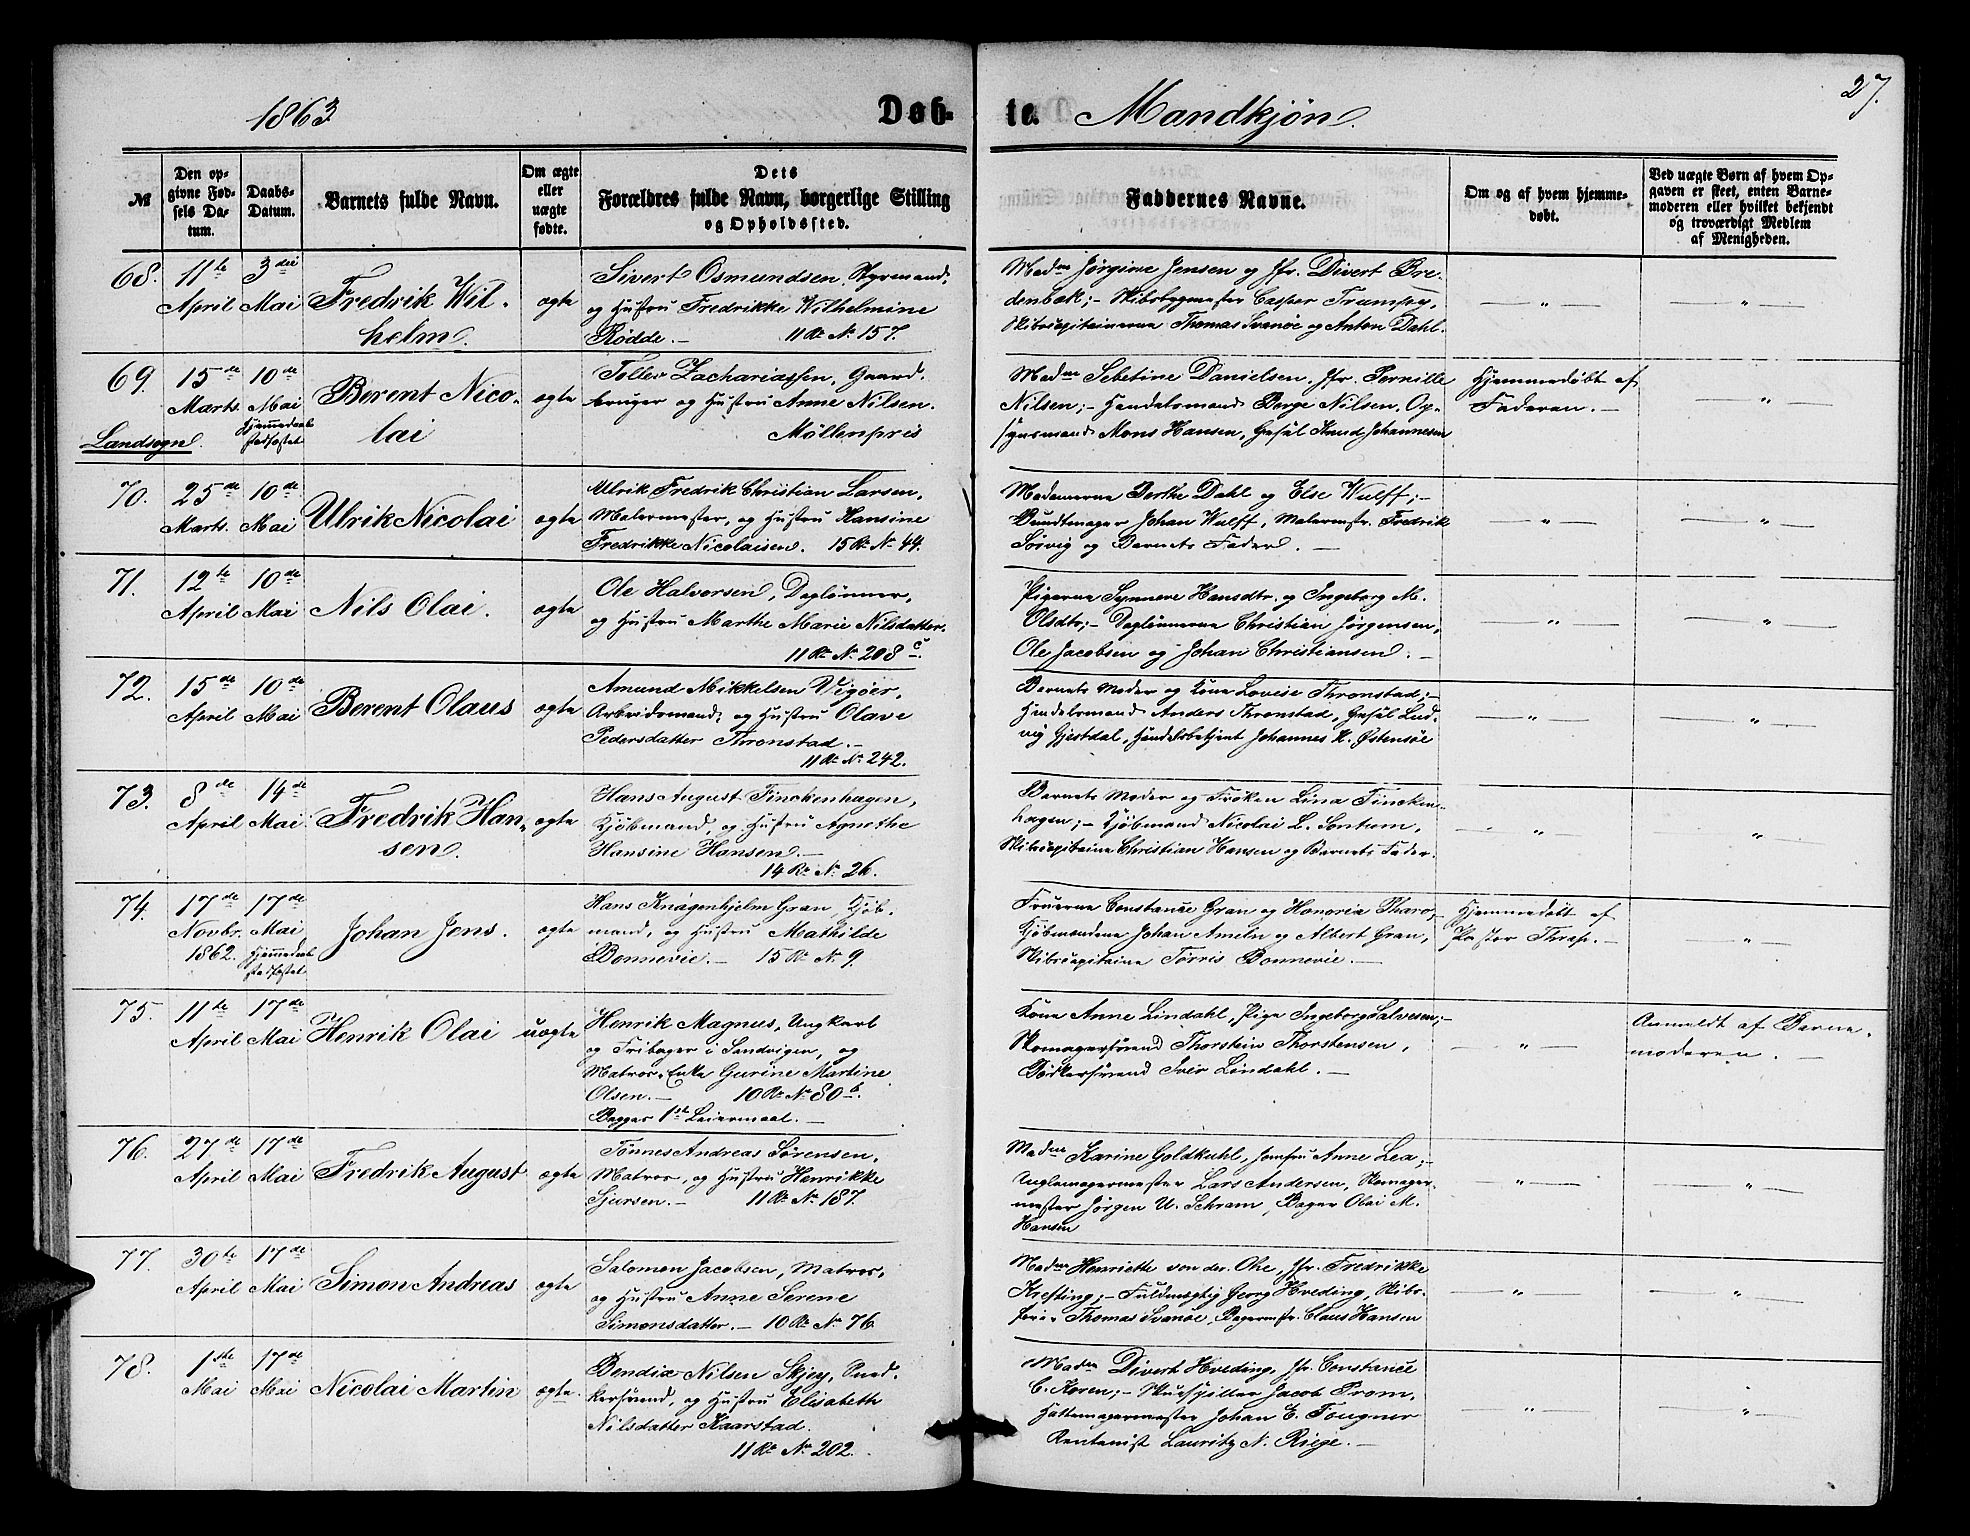 1863
Døb-
te. Mandkjøn.
27.
№
Den op-
givne Fød-
sels Da-
tum.
Daabs-
Datum.
Barnets fulde Navn.
Om ægte
eller
uægte
fødte.
Dets
Forældres fulde Navn, borgerlige Stilling
og Opholdssted.
Faddernes Navne.
Om og af hvem hjemme-
døbt.
Ved uægte Børn af hvem Op-
gaven er skeet, enten Barne-
moderen eller hvilket bekjendt
og troværdigt Medlem
af Menigheden.
68. 11te April 3die Mai
Fredrik Wil-
helm.
ægte
Sivert Osmundsen, Styrmand,
og Hustru Fredrikke Wilhelmine
Rødde. — 11 Rt No 157.
Madm Jørgine Jensen og Jfr. Divert Bre-
denbæk; — Skibsbygmester Casper Trumpy,
Skibscapitainerne Thomas Svanøe og Anton Dahl.
— " — — " —
69. 15de Marts. 10de Mai
Hjemmedaab
stadfæstet
Landsogn.
Berent Nico-
lai
ægte
Tollev Zachariassen, Gaard-
bruger og Hustru Anne Nilsen.
Møllenpris
Madme Sebetine Danielsen, Jfr. Pernille
Nilsen; — Handelsmand Børge Nilsen, Op-
synsmand Mons Hansen, Gesel Knud Johannesen
Hjemmedøbt af
Faderen. —
— " —
70. 25de Marts. 10de Mai
Ulrik Nicolai
ægte
Ulrik Fredrik Christian Larsen,
Malermester, og Hustru Hansine
Fredrikke Nicolaisen. 15 Rt No 44.
Madamerne Berthe Dahl og Else Wulff; —
Bundtmager Johan Wulff, Malermstr. Fredrik
Sørvig og Barnets Fader. —
— " — — " —
71. 12te April 10de Mai
Nils Olai.
ægte
Ole Halvorsen, Daglønner,
og Hustru Marthe Marie Nilsdatter.
11 Rt No 208 c.
Pigerne Synneve Hansdtr. og Ingeborg M.
Olsdtr; — Daglønnerne Christian Jørgensen,
Ole Jacobsen og Johan Christiansen. —
— " — — " —
72. 15de April 10de Mai
Berent Olaus
ægte
Amund Mikkelsen Vigøer,
Arbeidsmand, og Hustru Olave
Pedersdatter Thronstad. —
11 Rt No 242.
Barnets Moder og Kone Lovise Thronstad; —
Handelsmand Anders Thronstad, Gesel Lud-
vig Gjestdal, Handelsbetjent Johannes K. Østensøe
— " — — " —
73. 8de April 14de Mai
Fredrik Han-
sen.
ægte
Hans August Finckenhagen,
Kjøbmand, og Hustru Agnethe
Hansine Hansen. —
14 Rt No 26.
Barnets Moder og Frøken Lina Fincken-
hagen; — Kjøbmand Nicolai L. Sontum,
Skibscapitaine Christian Hansen og Barnets Fader.
— " — — " —
74. 17de Novbr. 1862. 17de Mai
Hjemmedaab
stadfæstet
Johan Jens.
ægte
Hans Knagenhjelm Gran, Kjøb-
mand, og Hustru Mathilde
Bonnevie. — 15 Rt No 9.
Fruerne Constance Gran og Honoria
Kjøbmændene Johan Ameln og Albert Gran,
Skibscapitaine Tørris Bonnevie. —
Hjemmedøbt af
Pastor Thrap. —
— " —
75. 11te April 17de Mai
Henrik Olai
uægte
Henrik Magnus, Ungkarl
og i Sandvigen, og
Matros-Enke Gurine Martine
Olsen. — 10 Rt No 80 b.
Begges 1ste Leiermaal. —
Kone Anne Lindahl, Pige Ingeborg Salvesen; —
Skomagersvend Thorstein Thorstensen,
Bødkersvend Iver Lindahl. —
— " —
Anmeldt af Barne-
moderen. —
76. 27de April 17de Mai
Fredrik August
ægte
Tønnes Andreas Sørensen,
Matros, og Hustru Henrikke
Sjursen. — 11 Rt No 187.
Madme Karine Goldkuhl, Jomfru Anne Lea; —
Uglemagermester Lars Andersen, Skomager-
mester Jørgen U. Schram, Bager Olai M.
Hansen
— " — — " —
77. 30te April 17de Mai
Simon Andreas
ægte
Salomon Jacobsen, Matros,
og Hustru Anne Serene
Simonsdatter. — 10 Rt No 76.
Madm Henriette von der Ohe, Jfr. Fredrikke
Krefting; — Fuldmægtig Georg Hveding, Skibs-
fører Thomas Svanøe, Bagermstr. Claus Hansen
— " — — " —
78. 1ste Mai 17de Mai
Nicolai Martin
ægte.
Bendix Nilsen Skjey, Sned-
kersvend, og Hustru Elisabeth
Nilsdatter Kaarstad.
11 Rt No 202.
Madm Divert Hveding, Jfr. Constance
C. Koren; — Jacob Prom,
Hattemagermester Johan E. Fougner
Rentenist Lauritz N. Riege. —
— " — — " —